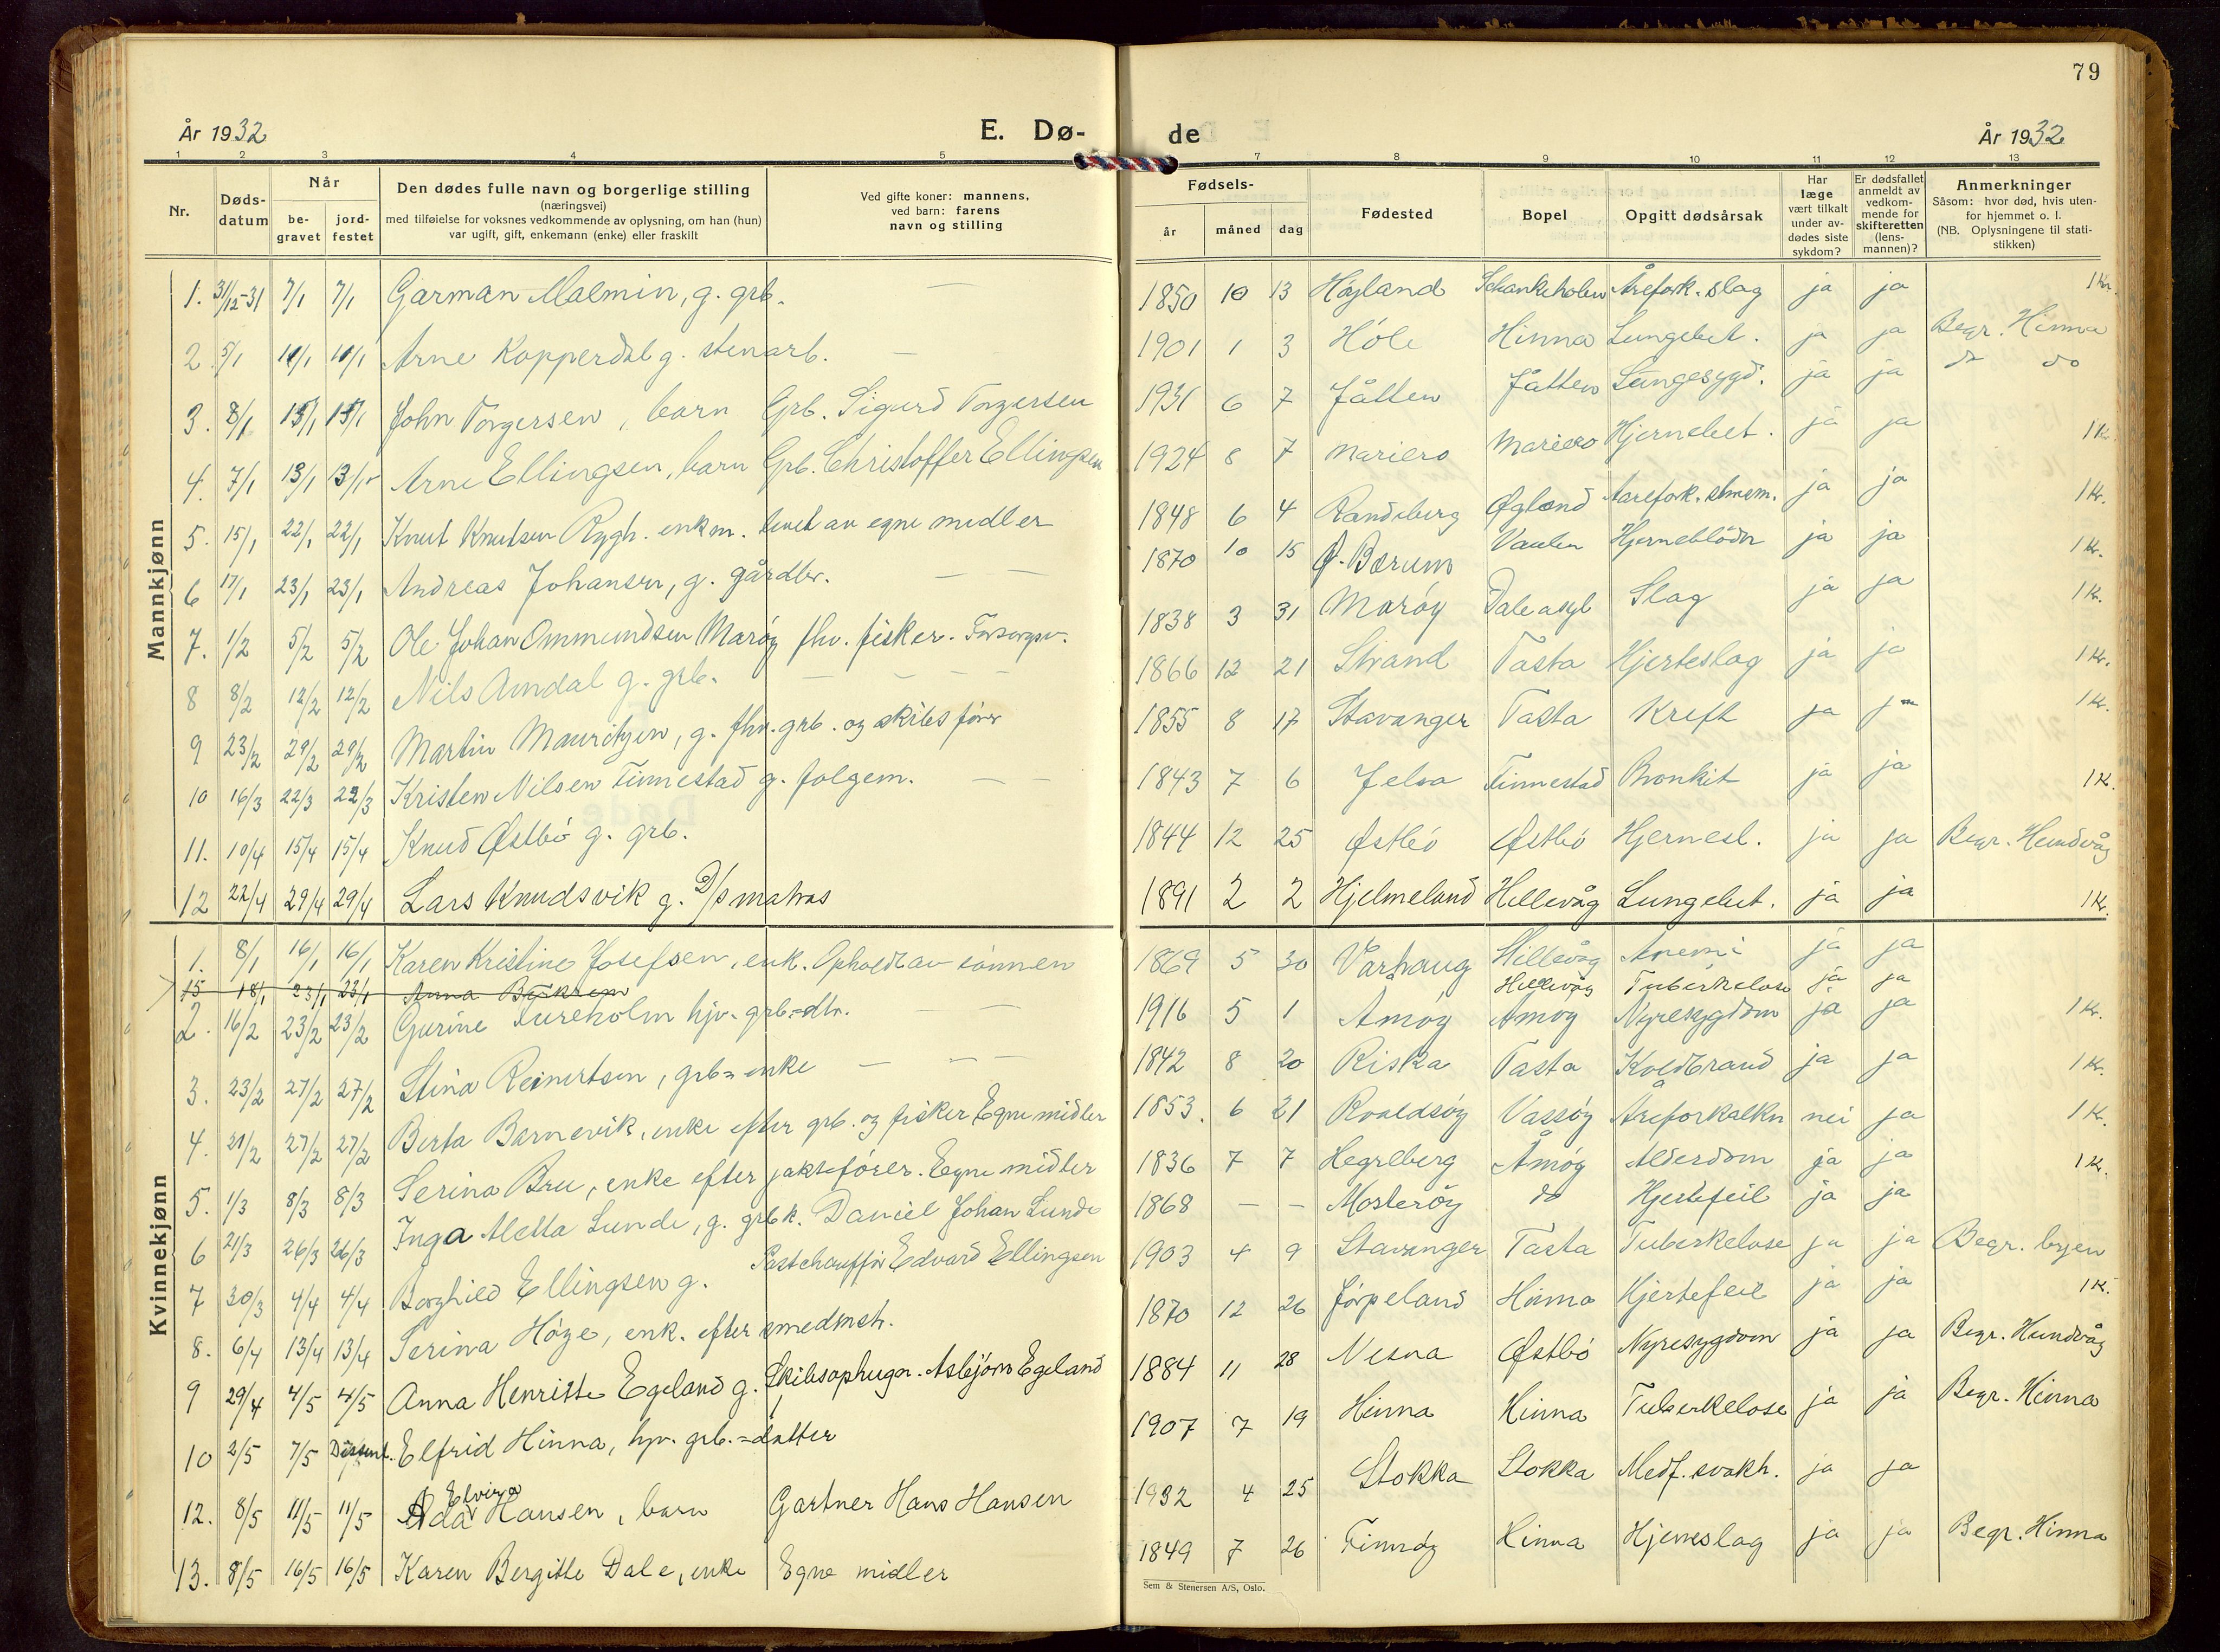 79
År 1932
E. Dø-
de
År 1932
1 2 3 4 5 7 8 9 10 11 12 13
Nr.
Døds-
datum
Når
be-
gravet
jord-
festet
Den dødes fulle navn og borgerlige stilling
(næringsvei)
med tilføielse for voksnes vedkommende av oplysning, om han (hun)
var ugift, gift, enkemann (enke) eller fraskilt
Ved gifte koner: mannens,
ved barn: farens
navn og stilling
Fødsels-
år måned dag
Fødested
Bopel
Opgitt dødsårsak
Har
læge
vært tilkalt
under av-
dødes siste
sykdom?
Er dødsfallet
anmeldt av
vedkom-
mende for
skifteretten
(lens-
mannen)?
Anmerkninger
Såsom: hvor død, hvis uten-
for hjemmet o. l.
(NB. Oplysningene til stati-
stikken)
Mannkjønn
1. 31/12-31 7/1 7/1 Garman Malmin, g. grb. — 1850 10 13 Høyland Schankeholen Årefork. slag ja ja 1 kr.
2 5/1 10/1 10/1 Arne Kopperdal g. stenarb. — 1901 1 3 Høle Hinna Lungebet. ja ja Begr. Hinna
3. 8/1 15/1 15/1 John Torgersen, barn Grb. Sigurd Torgersen 1931 6 7 Jåtten Jåtten Lungesygd. ja ja do do
4. 7/1 13/1 13/1 Arne Ellingsen, barn Grb. Christoffer Ellingsen 1924 8 7 Mariero Mariero Hjernebet. ja ja 1 Kr.
5. 15/1 22/1 22/1 Knut Knutsen Rygh. enkm. levet av egne midler 1848 6 4 Randeberg Øgland Aarefork. ja ja 1 Kr.
6 17/1 23/1 23/1 Andreas Johansen, g. gårdbr. — — 1870 10 15 Ø. Bærum Vaulen Hjerneblödn ja ja 1 Kr.
7. 1/2 5/2 5/2 Ole Johan Ommundsen Marøy fhv. fisker. Forsorgsv. 1838 3 31 Marøy Dale asyl Slag ja ja 1 Kr.
8 8/2 12/2 12/2 Nils Amdal g. grb. — — — 1866 12 21 Strand Tasta Hjerteslag ja ja 1 Kr.
9 23/2 29/2 29/2 Martin Mauritzen, g. fhv. grb. og skibsfører 1855 8 17 Stavanger Tasta Kreft ja ja 1 Kr.
10 16/3 22/3 22/3 Kristen Nilsen Finnestad g. folgem. — — 1843 7 6 Jelsa Finnestad Bronkit ja ja 1 K.
11. 10/4 15/4 15/4 Knud Østbö g. grb. 1844 12 25 Østbö Østbö Hjernesl. ja ja Begr. Hundvåg
12 22/4 29/4 29/4 Lars Knudsvik g. D/s matros 1891 2 2 Hjelmeland Hillevåg Lungebet. ja ja 1 Kr.
Kvinnekjønn
1. 8/1 16/1 16/1 Karen Kristine Josefsen, enk. Opholdt av sönnen 1869 5 30 Varhaug Hillevåg Anemi ja ja
15 18/1 23/1 23/1 Anna Hillevåg Tuberkelose ja ja
2. 16/2 23/2 23/2 Gurine Tureholm hjv. grb=dtr. — — 1916 5 1 Åmøy Åmøy Nyresygdom ja ja 1 Kr.
3. 23/2 27/2 27/2 Stina Reinertsen, grb=enke — — — 1842 8 20 Riska Tasta Koldbrand ja ja 1 Kr.
4. 21/2 27/2 27/2 Berta Barnevik, enke efter grb. og fisker Egne midler 1853. 6 21 Roaldsøy Vassøy Åreforkalkn nei ja 1 K.
5. 1/3 8/3 8/3 Serina Bru, enke efter jaktefører. Egne midler 1836 7 7 Hegreberg Åmøy Alderdom ja ja 1 Kr.
6 21/3 26/3 26/3 Inga Aletta Lunde, g. grb k. Daniel Johan Lunde 1868 — — Mosterøy do Hjertefeil ja ja
7 30/3 4/4 4/4 Borghild Ellingsen g. Postchauffør Edvard Ellingsen 1903 4 9 Stavanger Tasta Tuberkelose ja ja Begr. byen
8. 6/4 13/4 13/4 Serina Höye, enk. efter smedmstr. 1870 12 26 Jørpeland Hinna Hjertefeil ja ja 1 K.
9 29/4 4/5 4/5 Anna Henritte Egeland g. Skibsophugn. Asbjörn Egeland 1884 11 28 Nesna Østbö Nyresygdom ja ja Begr. Hundvåg
10 2/5 7/5 Dissent. Elfrid Hinna, hjv. grb.=datter 1907 7 19 Hinna Hinna Tuberkelose ja ja Begr. Hinna
12. 8/5 11/5 11/5 Ada Elvira Hansen, barn Gartner Hans Hansen 1932 4 25 Stokka Stokka Medf. svakh. ja ja
13. 8/5 16/5 16/5 Karen Bergitte Dale, enke Egne midler 1849 7 26 Finnøy Hinna Hjerneslag ja ja Begr. Hinna
Sem & Stenersen A/S, Oslo.